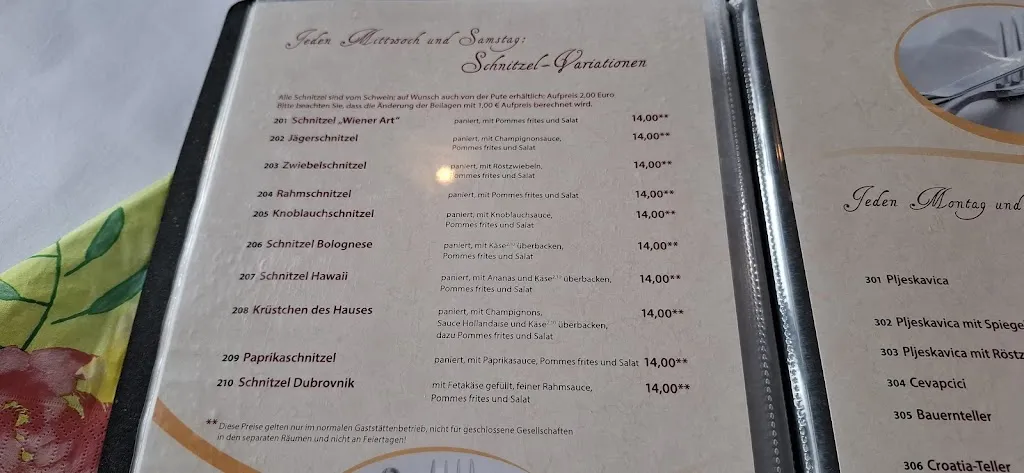 Jeden Mittwoch und Samstag:
Schnitzel-Variationen
Alle Schnitzel sind vom Schwein; auf Wunsch auch von der Pute erhältlich: Aufpreis 2,00 Euro
Bitte beachten Sie, dass die Änderung der Beilagen mit 1,00 € Aufpreis berechnet wird.
201 Schnitzel „Wiener Art" paniert, mit Pommes frites und Salat 14,00**
202 Jägerschnitzel paniert, mit Champignonsauce, 14,00**
Pommes frites und Salat
203 Zwiebelschnitzel paniert, mit Röstzwiebeln, 14,00**
Pommes frites und Salat
204 Rahmschnitzel paniert, mit Pommes frites und Salat 14,00**
205 Knoblauchschnitzel paniert, mit Knoblauchsauce, 14,00**
Pommes frites und Salat
206 Schnitzel Bolognese paniert, mit Käse überbacken, 14,00**
Pommes frites und Salat
207 Schnitzel Hawaii paniert, mit Ananas und Käse überbacken, 14,00**
Pommes frites und Salat
208 Krüstchen des Hauses paniert, mit Champignons, 14,00**
Sauce Hollandaise und Käse überbacken,
dazu Pommes frites und Salat
209 Paprikaschnitzel paniert, mit Paprikasauce, Pommes frites und Salat 14,00**
210 Schnitzel Dubrovnik mit Fetakäse gefüllt, feiner Rahmsauce, 14,00**
Pommes frites und Salat
** Diese Preise gelten nur im normalen Gaststättenbetrieb, nicht für geschlossene Gesellschaften
in den separaten Räumen und nicht an Feiertagen!
Jeden Montag und
301 Pljeskavica
302 Pljeskavica mit Spiege
303 Pljeskavica mit Röstz
304 Cevapcici
305 Bauernteller
306 Croatia-Teller